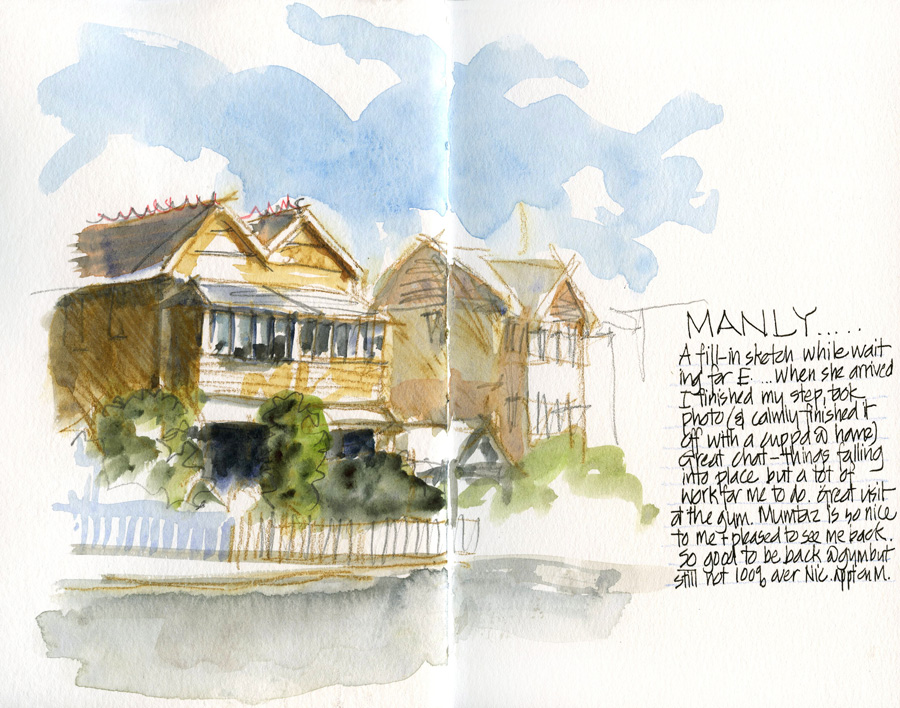 MANLY.....
A fill-in sketch while wait
ing for E. ...when she arrived
I finished my step, took
photo (& calmly finished it
off with a cuppa @ home)
Great chat - things falling
into place but a lot of
work for me to do. Great visit
at the gym. Mumtaz is so nice
to me + pleased to see me back.
So good to be back @ gym but
still not 100% over Nic. on M.